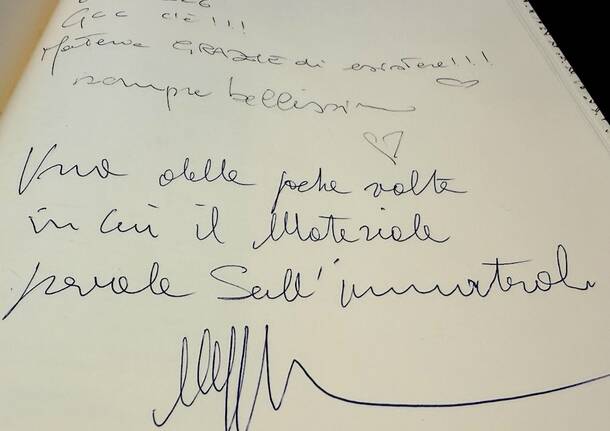 c'è!!!
Matera GRAZIE di esistere!!!
sempre bellissima
Una delle poche volte
in cui il Materiale
prevale Sull'immateriale